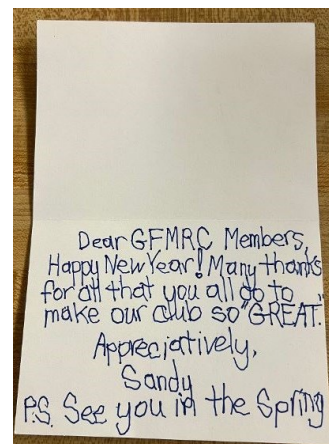 Dear GFMRC Members,
Happy New Year! Many thanks
for all that you all do to
make our club so "GREAT."
Appreciatively,
Sandy
P.S. See you in the Spring